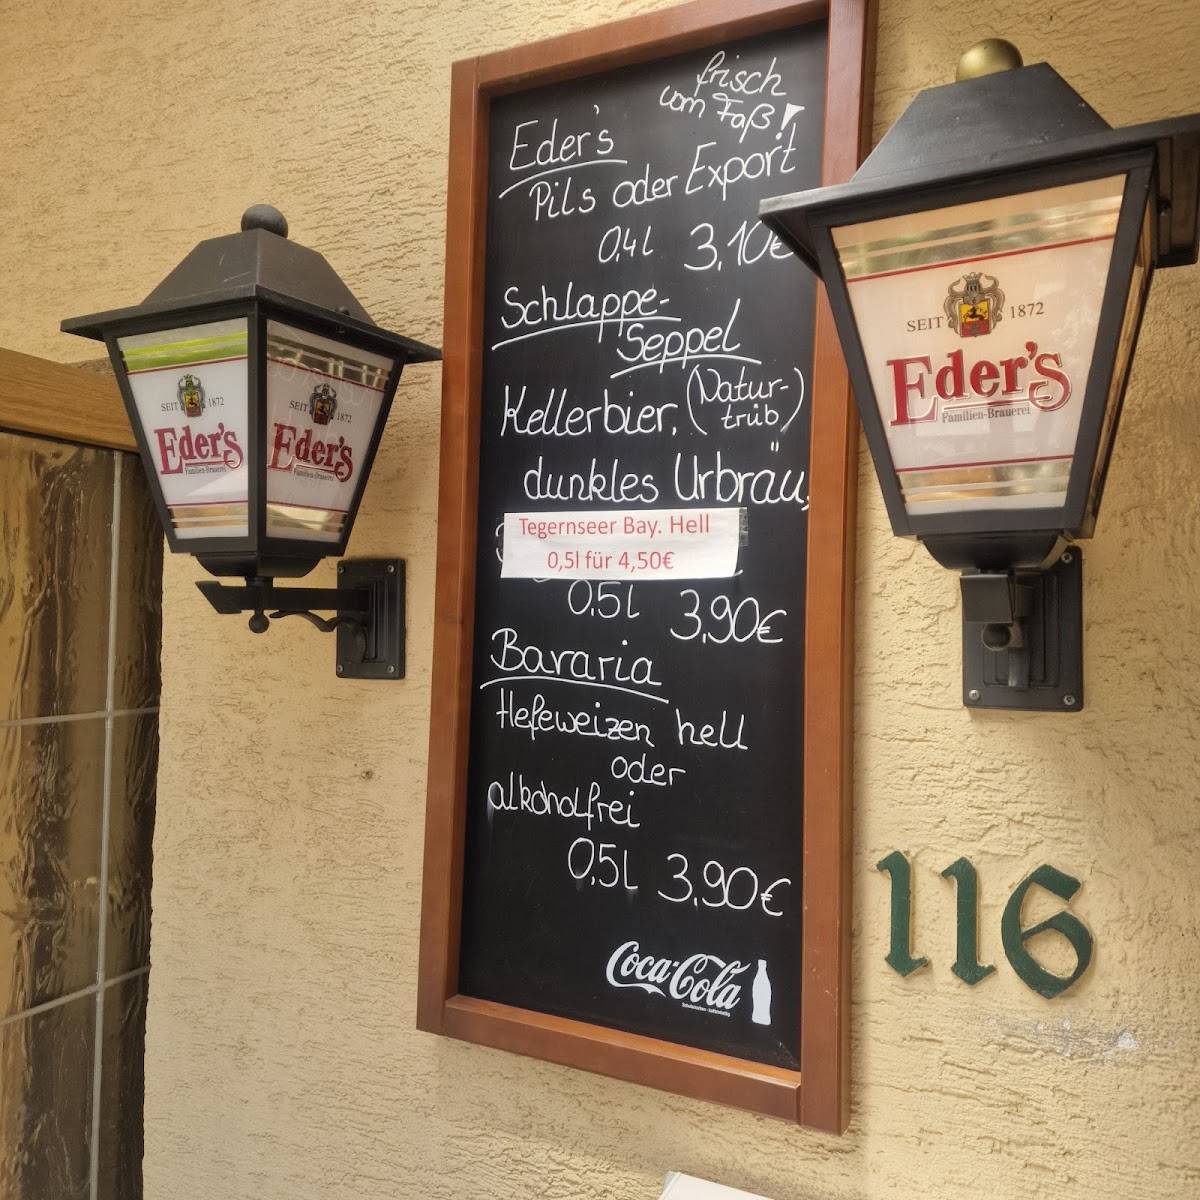 frisch
vom Faß!
Eder's
Pils oder Export
0,4l 3,10€
Schlappe-
Seppel
Kellerbier, (Natur-
trüb)
dunkles Urbräu,
Tegernseer Bay. Hell
0,5l für 4,50€
0,5l 3,90€
Bavaria
Hefeweizen hell
oder
alkoholfrei
0,5l 3,90€
Coca-Cola
SEIT 1872
Eder's
Familien-Brauerei
SEIT 1872
Eder's
Familien-Brauerei
SEIT 1872
Eder's
Familien-Brauerei
116